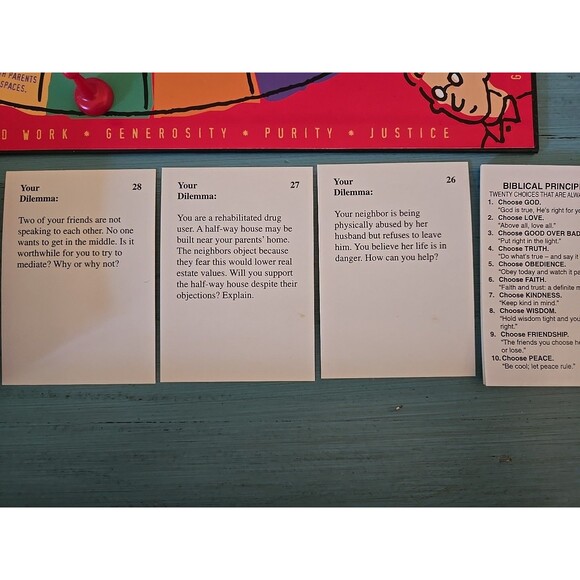 PARENTS
SPACES.
WORK * GENEROSITY * PURITY * JUSTICE
G
Your 28
Dilemma:
Two of your friends are not
speaking to each other. No one
wants to get in the middle. Is it
worthwhile for you to try to
mediate? Why or why not?
Your 27
Dilemma:
You are a rehabilitated drug
user. A half-way house may be
built near your parents' home.
The neighbors object because
they fear this would lower real
estate values. Will you support
the half-way house despite their
objections? Explain.
Your 26
Dilemma:
Your neighbor is being
physically abused by her
husband but refuses to leave
him. You believe her life is in
danger. How can you help?
BIBLICAL PRINCIP
TWENTY CHOICES THAT ARE ALWA
1. Choose GOD.
"God is true, He's right for yo
2. Choose LOVE.
"Above all, love all."
3. Choose GOOD OVER BAD
"Put right in the light."
4. Choose TRUTH.
"Do what's true – and say it
5. Choose OBEDIENCE.
"Obey today and watch it pa
6. Choose FAITH.
"Faith and trust: a definite m
7. Choose KINDNESS.
"Keep kind in mind."
8. Choose WISDOM.
"Hold wisdom tight and you
right."
9. Choose FRIENDSHIP.
"The friends you choose he
or lose."
10. Choose PEACE.
"Be cool; let peace rule."